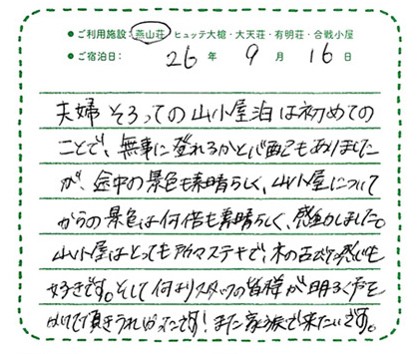 ●ご利用施設：燕山荘 ヒュッテ大槍・大天荘・有明荘・合戦小屋
●ご宿泊日： 26年 9月 16日
夫婦そろっての山小屋泊は初めての
ことで、無事に登れるかと心配もありました
が、途中の景色も素晴らしく、山小屋について
からの景色は何倍も素晴らしく、感動しました。
山小屋はとっても ステキで、木の古びた感じも
好きです。そして何よりスタッフの皆様が明るく声を
かけて頂きうれしかったです！また家族で来たいです。